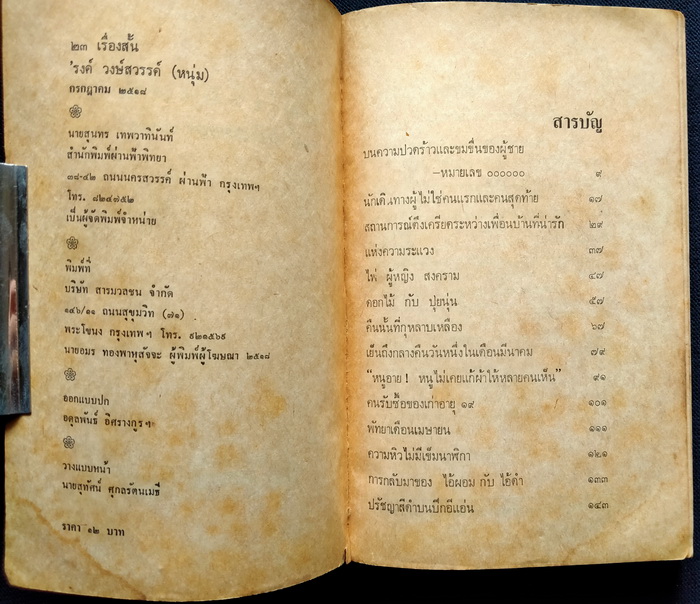 ๒๓ เรื่องสั้น
'รงค์ วงษ์สวรรค์ (หนุ่ม)
กรกฎาคม ๒๕๑๘
นายสุนทร เทพวาทินันท์
สำนักพิมพ์ผ่านฟ้าพิทยา
๓๘-๔๒ ถนนนครสวรรค์ ผ่านฟ้า กรุงเทพฯ
โทร. ๘๒๔๗๕๒
เป็นผู้จัดพิมพ์จำหน่าย
พิมพ์ที่
บริษัท สารมวลชน จำกัด
๑๔๖/๑๑ ถนนสุขุมวิท (๗๑)
พระโขนง กรุงเทพฯ โทร. ๙๒๑๕๖๙
นายอมร ทองพาหุสัจจะ ผู้พิมพ์ผู้โฆษณา ๒๕๑๘
ออกแบบปก
อดุลพันธ์ อิศรางกูรฯ
วางแบบหน้า
นายสุทัศน์ ศุกลรัตนเมธี
ราคา ๑๒ บาท
สารบัญ
บนความปวดร้าวและขมขื่นของผู้ชาย
—หมายเลข ๐๐๐๐๐๐ ๙
นักเดินทางผู้ไม่ใช่คนแรกและคนสุดท้าย ๑๗
สถานการณ์ตึงเครียดระหว่างเพื่อนบ้านที่น่ารัก ๒๙
แห่งความระแวง ๓๗
ไพ่ ผู้หญิง สงคราม ๔๗
ดอกไม้ กับ ปุยนุ่น ๕๗
คืนนั้นที่กุหลาบเหลือง ๖๗
เย็นถึงกลางคืนวันหนึ่งในเดือนมีนาคม ๗๙
"หนูอาย! หนูไม่เคยแก้ผ้าให้หลายคนเห็น" ๙๑
คนรับซื้อของเก่าอายุ ๑๙ ๑๐๑
พัทยาเดือนเมษายน ๑๑๑
ความหิวไม่มีเข็มนาฬิกา ๑๒๑
การกลับมาของ ไอ้ผอม กับ ไอ้ดำ ๑๓๓
ปรัชญาสีดำบนบีกอีแอ่น ๑๔๓